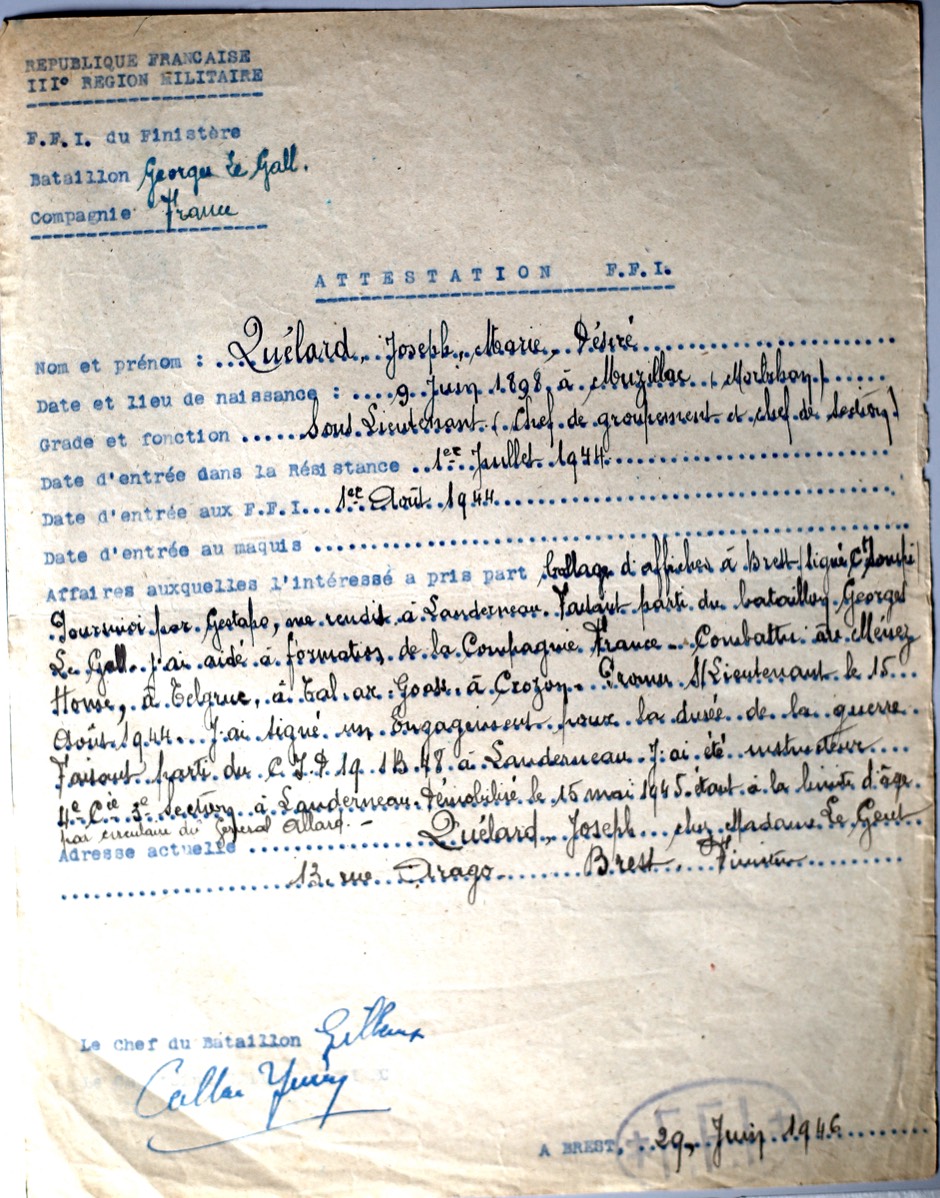 REPUBLIQUE FRANCAISE
III° REGION MILITAIRE
F.F.I. du Finistère
Bataillon Georges Le Gall.
Compagnie France
ATTESTATION F.F.I.
Nom et prénom : Quélard, Joseph, Marie, Désiré
Date et lieu de naissance : 9 Juin 1898 à Muzillac (Morbihan)
Grade et fonction Sous Lieutenant (Chef de groupement et chef de section)
Date d'entrée dans la Résistance 1er Juillet 1944
Date d'entrée aux F.F.I. 1er Août 1944
Date d'entrée au maquis
Affaires auxquelles l'intéressé a pris part Collage d'affiches à Brest (signé
par Gestapo, me rendis à Landerneau. Faisant parti du bataillon Georges
Le Gall. J'ai aidé à formation de la Compagnie France - Combattu au Ménez
Home, à Telgruc, à Tal ar Goas, à Crozon. Promu S/Lieutenant le 15
Août 1944. J'ai signé un Engagement pour la durée de la guerre
Faisant parti du C.I.D 19 1B.48 à Landerneau. J'ai été instructeur
4e Cie 3e section à Landerneau. Démobilisé le 15 mai 1945 étant à la limite d'âge
par circulaire du Général Allard. -
Adresse actuelle Quélard, Joseph chez Madame Le Geret
13 rue Arago Brest, Finistère
Le Chef du Bataillon
A BREST, 29, Juin 1946
F.F.I.